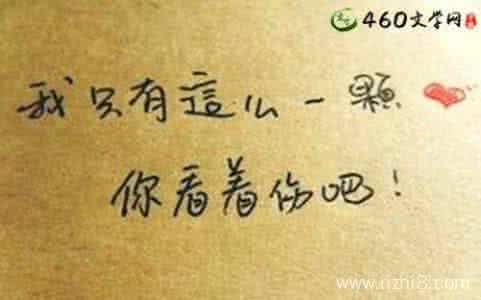 460文学网
我只有這么一顆
你看着伤吧！
www.rizhi8.com